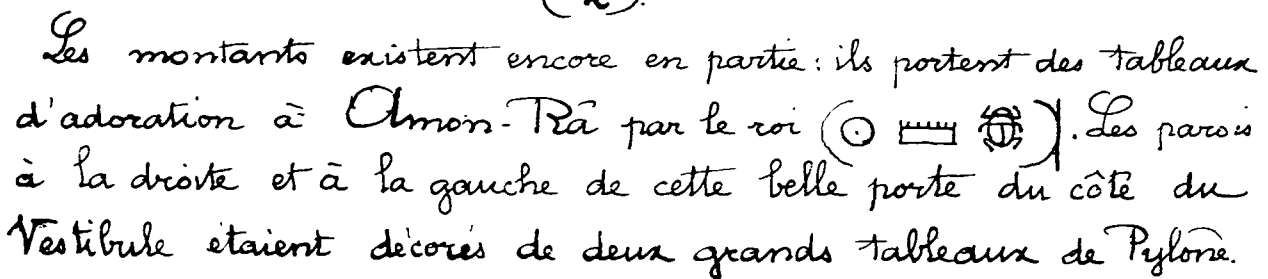 (2).
Les montants existent encore en partie: ils portent des tableaux
d'adoration à Amon-Râ par le roi (𓇳 𓏠 𓆣). Les parois
à la droite et à la gauche de cette belle porte du côté du
Vestibule étaient décorés de deux grands tableaux de Pylône.